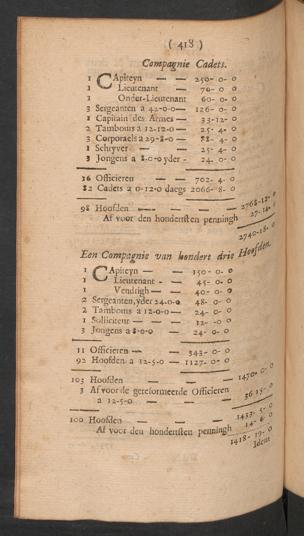 ( 418 )
Compagnie Cadets.
1 CApiteyn — — 250- 0- 0
1 Lieutenant — 70- 0- 0
1 Onder-Lieutenant 60- 0- 0
3 Sergeanten a 42-0-0— 126- 0- 0
1 Capitain des Armes— 33-12- 0
2 Tambouis a 12-12-0— 25- 4- 0
3 Corporaels a 29-8-0— 88- 4- 0
1 Schryver — — 25- 4- 0
3 Jongens a 8-0-0 yder- 24- 0- 0
16 Officieren — — 702- 4- 0
82 Cadets a 0-12-0 daegs 2066- 8- 0
98 Hoofden — — — 2768-12- 0
Af voor den hondersten penningh 27-14- 0
2740-18- 0
Een Compagnie van hondert drie Hoofden.
1 CApiteyn — — 150- 0- 0
1 Lieutenant - — 45- 0- 0
1 Vendrigh — — 40- 0- 0
2 Sergeanten, yder 24-0-0 48- 0- 0
2 Tambouis a 12-0-0— 24- 0- 0
1 Solliciteur — — 12- 0- 0
3 Jongens a 8-0-0 24- 0- 0
11 Officieren — — 343- 0- 0
92 Hoofden a 12-5-0 —1127- 0- 0
103 Hoofden — — — 1470- 0- 0
3 Af voor de gereformeerde Officieren
a 12-5-0 — — — 36-15- 0
1433- 5- 0
100 Hoofden — — —
Af voor den hondersten penningh 14- 6- 0
1418- 19- 0
Idem